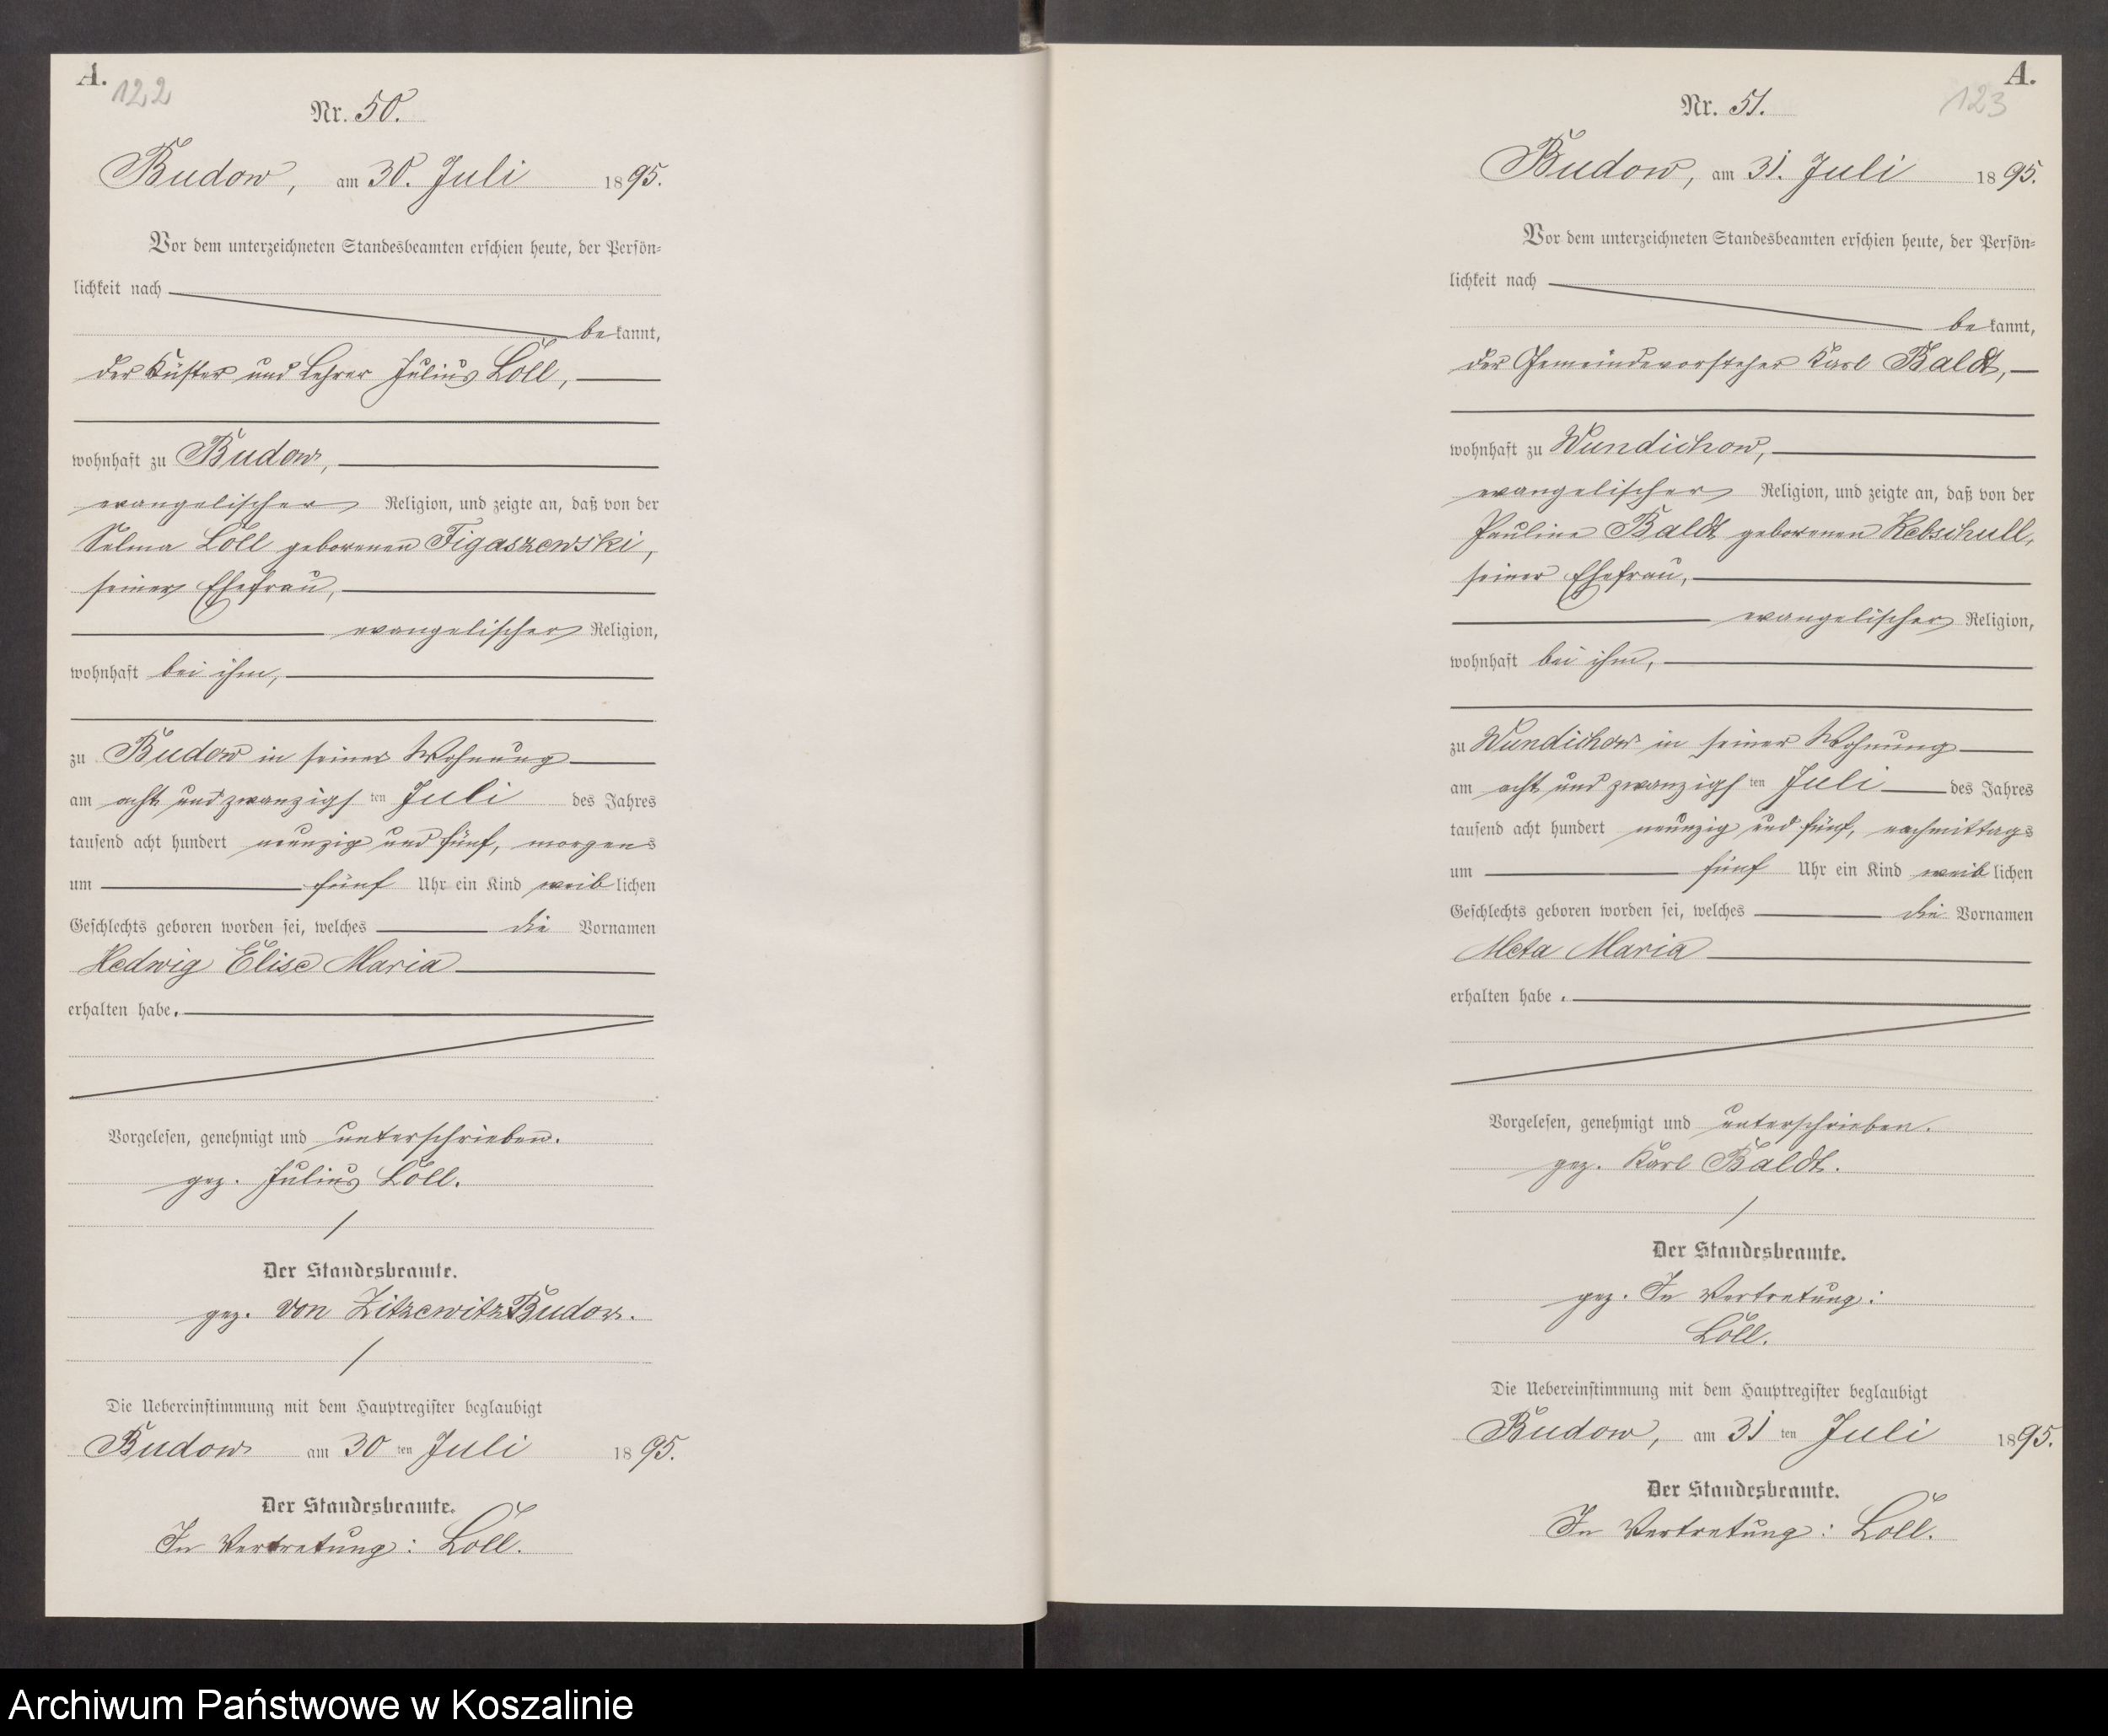 A.
122
Nr. 50.
Budow, am 30. Juli 1895.
Vor dem unterzeichneten Standesbeamten erschien heute, der Persön-
lichkeit nach
bekannt,
der Küster und Lehrer Julius Löll,
wohnhaft zu Budow,
evangelischer Religion, und zeigte an, daß von der
Selma Löll geborenen Figaszewski,
seiner Ehefrau,
evangelischer Religion,
wohnhaft bei ihm,
zu Budow in seiner Wohnung
am acht und zwanzigsten Juli des Jahres
tausend acht hundert neunzig und fünf, morgens
um fünf Uhr ein Kind weiblichen
Geschlechts geboren worden sei, welches die Vornamen
Hedwig Elise Maria
erhalten habe.
Vorgelesen, genehmigt und unterschrieben.
gez. Julius Löll.
Der Standesbeamte.
gez. von Zitzewitz Budow.
Die Uebereinstimmung mit dem Hauptregister beglaubigt
Budow am 30ten Juli 1895.
Der Standesbeamte.
In Vertretung: Löll.
A.
123
Nr. 51.
Budow, am 31. Juli 1895.
Vor dem unterzeichneten Standesbeamten erschien heute, der Persön-
lichkeit nach
bekannt,
der Gemeindevorsteher Karl Baldt,
wohnhaft zu Wundichow,
evangelischer Religion, und zeigte an, daß von der
Pauline Baldt geborenen Kebschull,
seiner Ehefrau,
evangelischer Religion,
wohnhaft bei ihm,
zu Wundichow in seiner Wohnung
am acht und zwanzigsten Juli des Jahres
tausend acht hundert neunzig und fünf, nachmittags
um fünf Uhr ein Kind weiblichen
Geschlechts geboren worden sei, welches die Vornamen
Meta Maria
erhalten habe.
Vorgelesen, genehmigt und unterschrieben.
gez. Karl Baldt.
Der Standesbeamte.
gez. In Vertretung:
Löll.
Die Uebereinstimmung mit dem Hauptregister beglaubigt
Budow, am 31ten Juli 1895.
Der Standesbeamte.
In Vertretung: Löll.
Archiwum Państwowe w Koszalinie